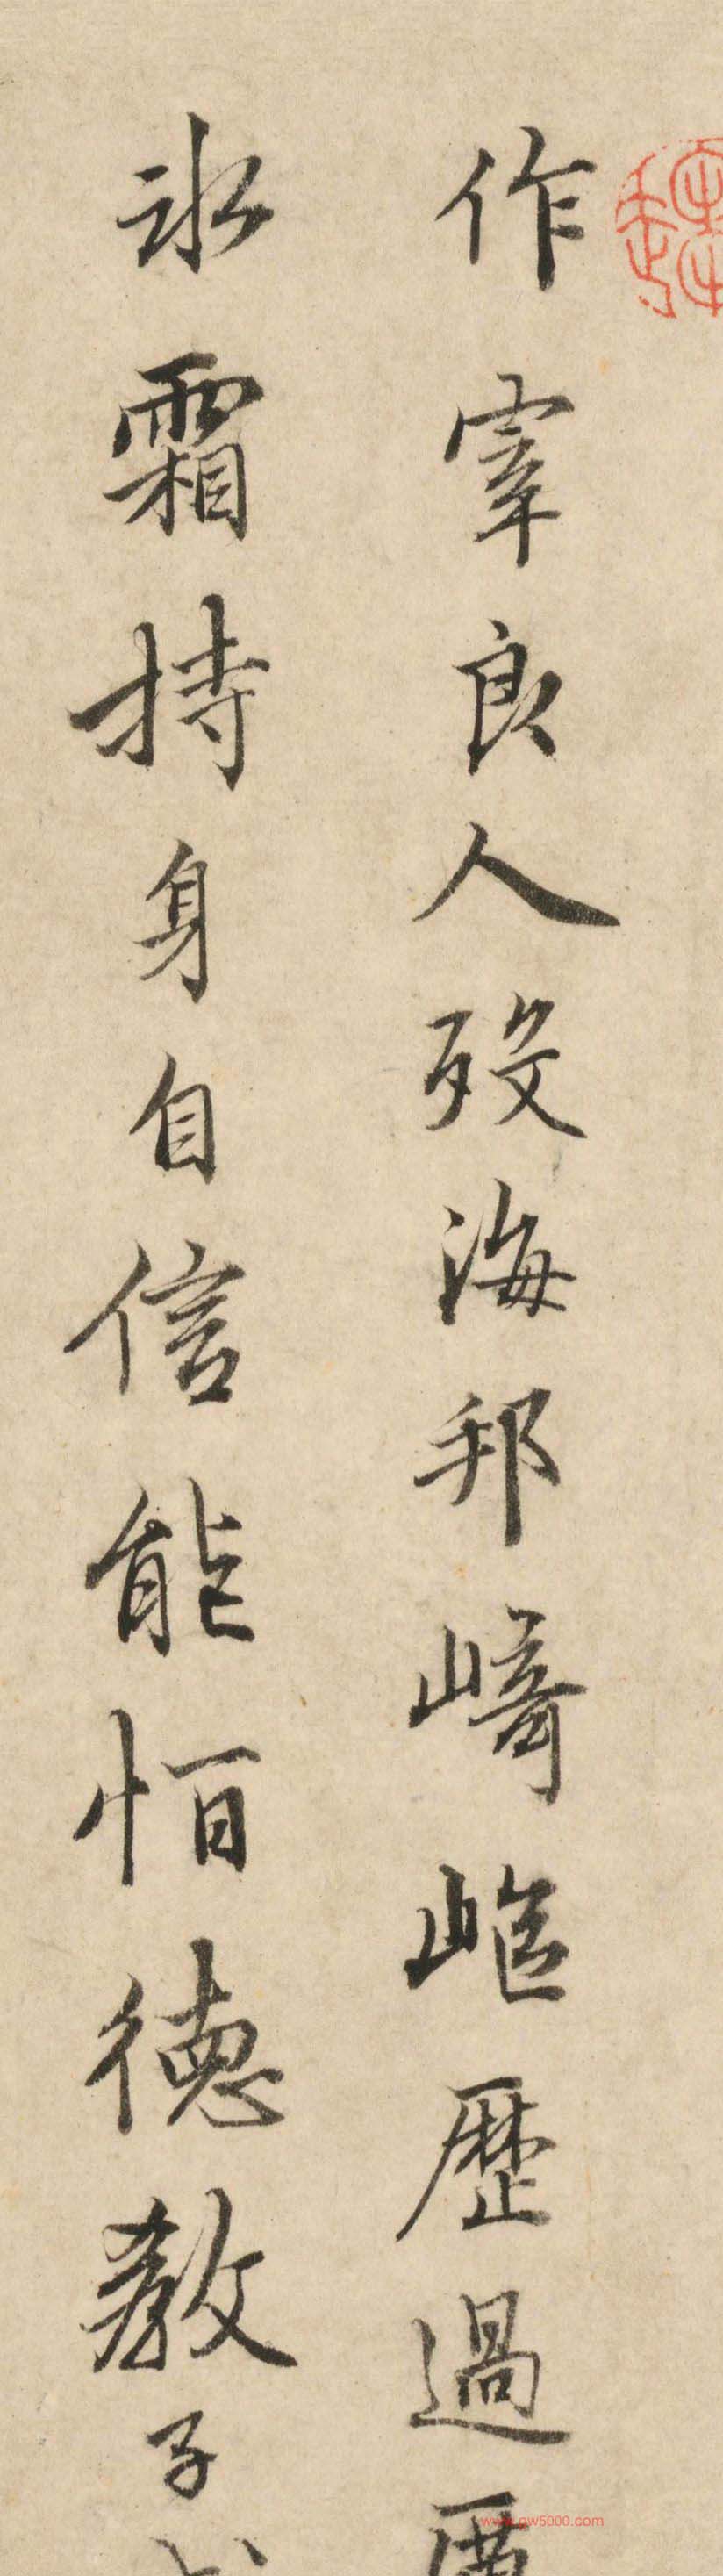 作宰良人歿海邦崎嶇歷過
冰霜持身自信能恒德教子
www.gw5000.com